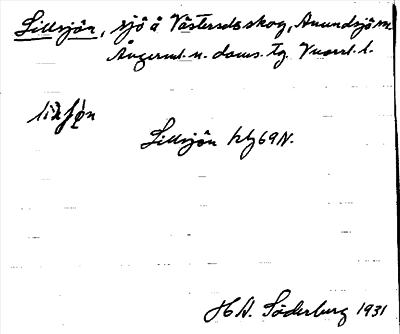 Lillsjön, sjö å Västersels skog, Anundsjö sn.
Ångerml. n. doms. tg. Vnorrl. l.
Lillsjön kbl 69 N.
H. A. Söderberg 1931